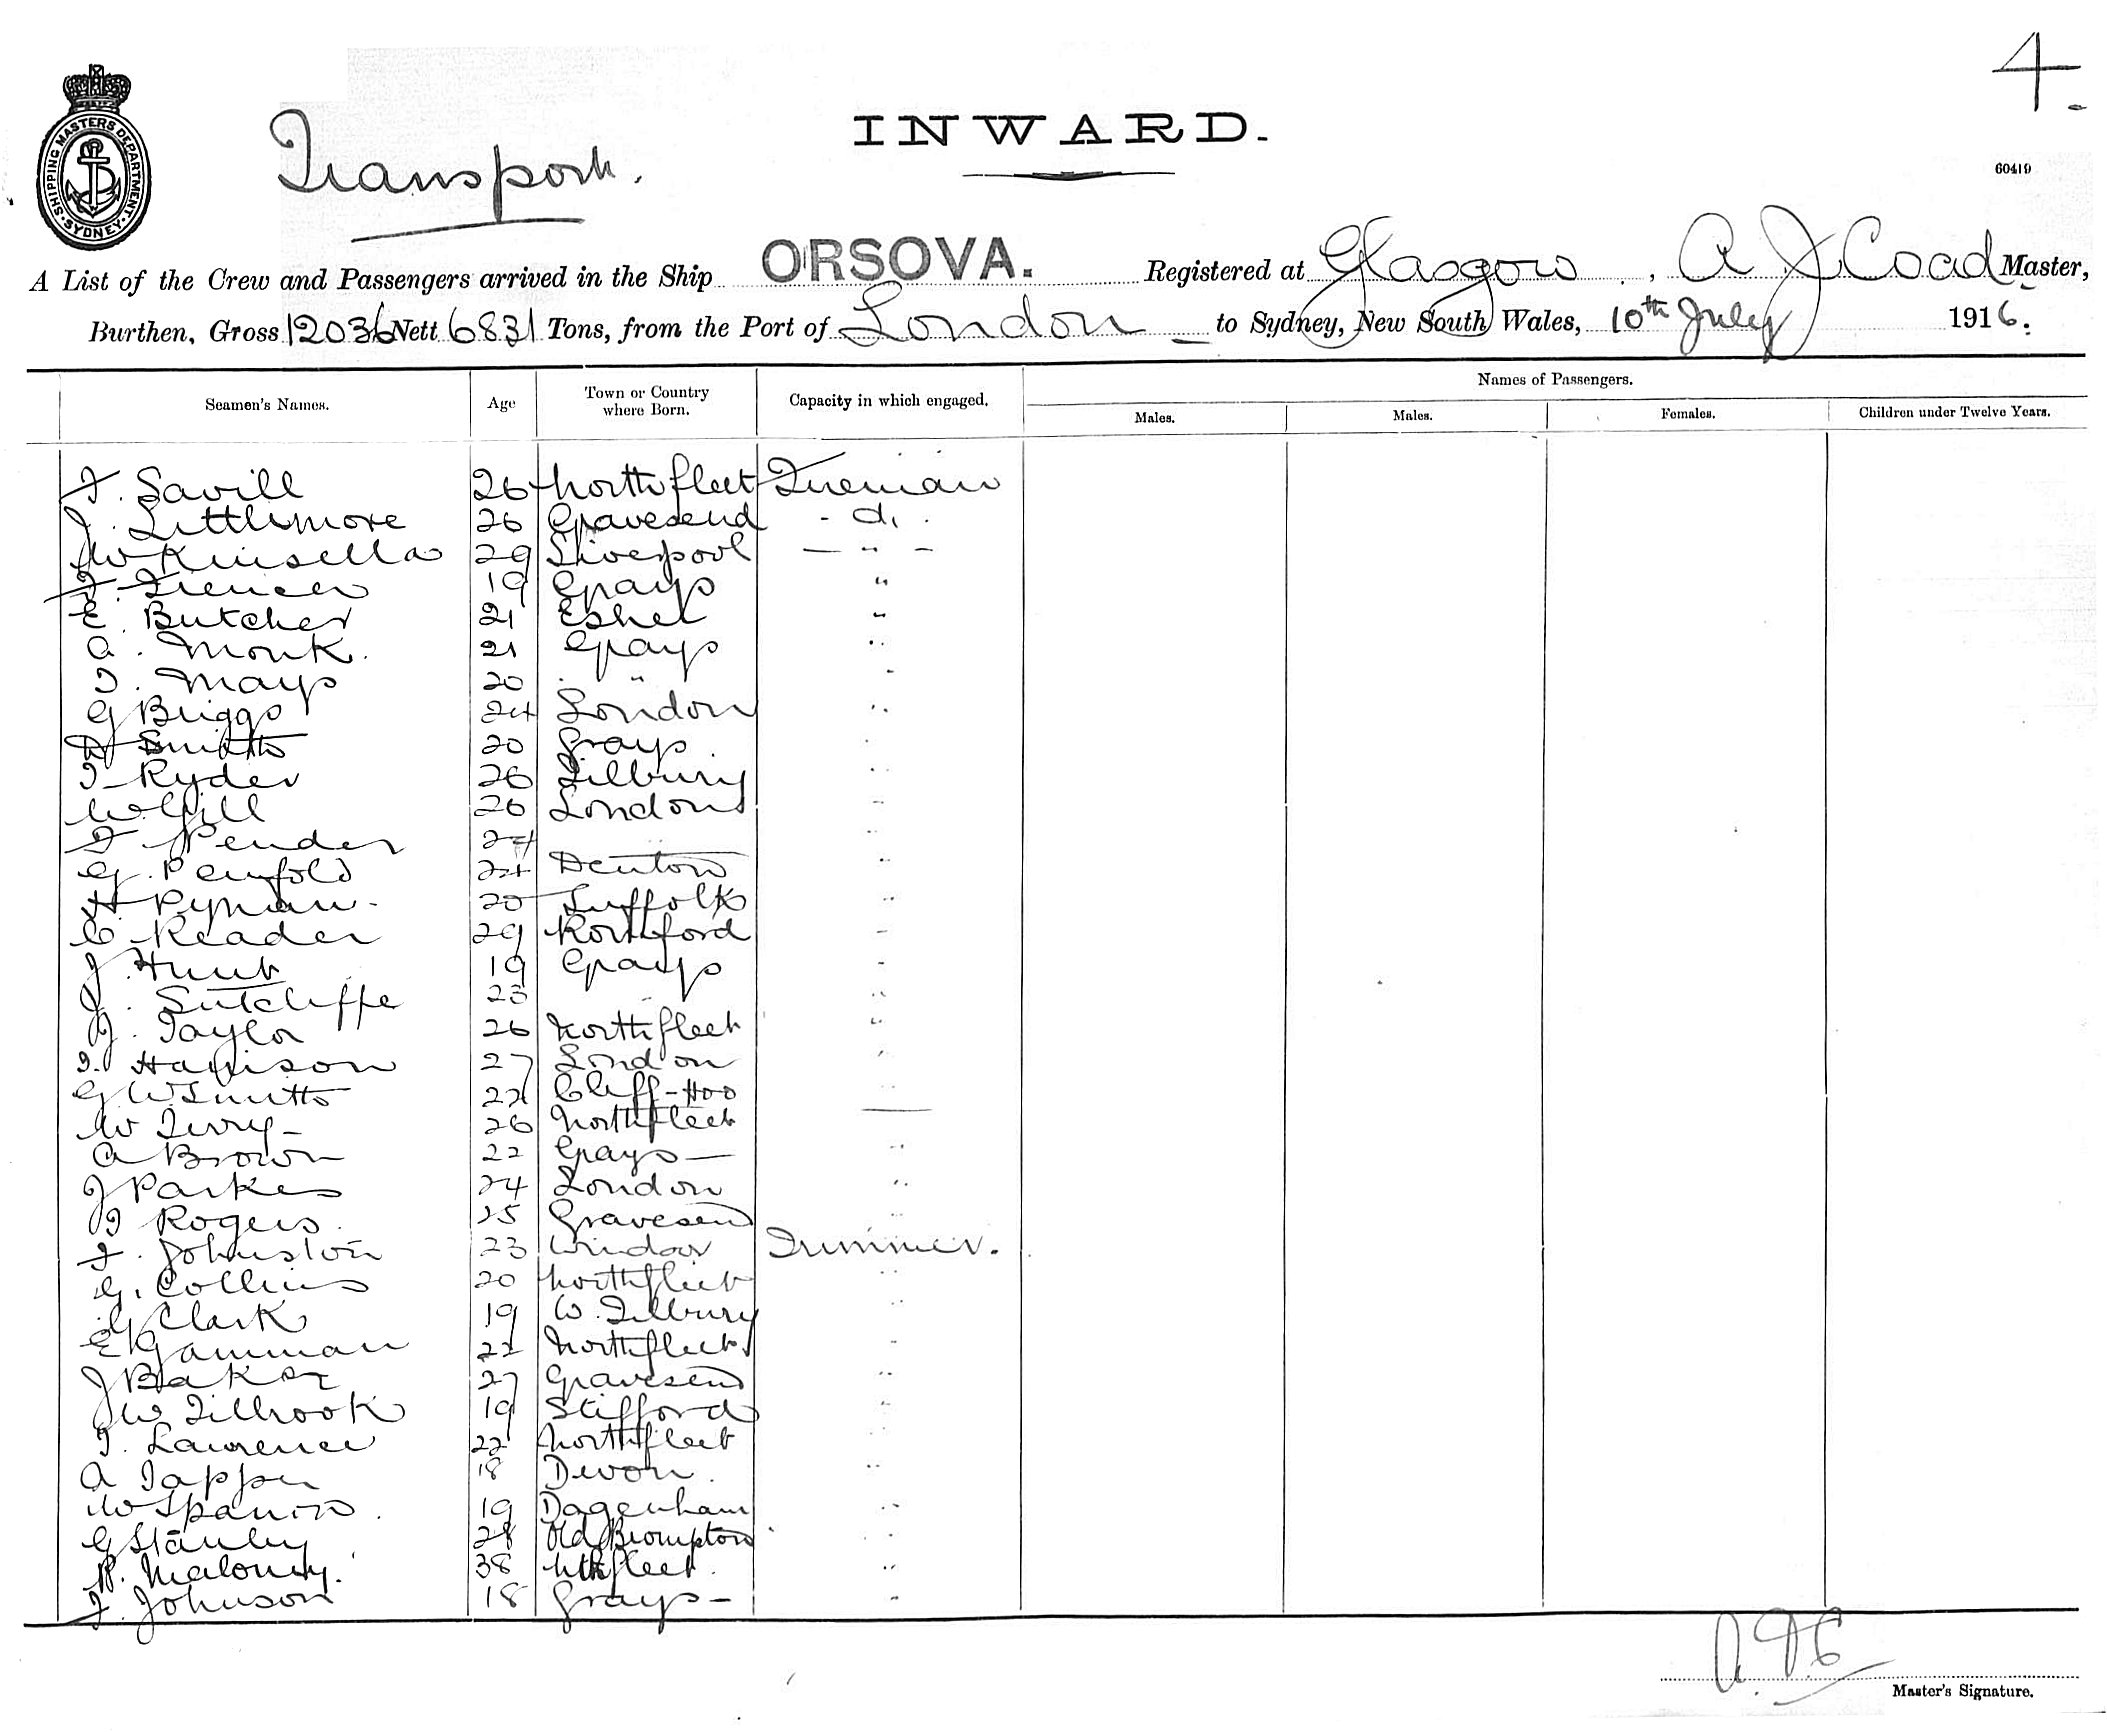 4.
INWARD.
Transport.
60419
SHIPPING MASTERS DEPARTMENT. SYDNEY.
A List of the Crew and Passengers arrived in the Ship ORSOVA. Registered at Glasgow, A J Coad Master,
Burthen, Gross 12036 Nett 6831 Tons, from the Port of London to Sydney, New South Wales, 10th July 1916.
Seamen's Names. Age Town or Country where Born. Capacity in which engaged. Names of Passengers.
Males. Males. Females. Children under Twelve Years.
F. Savill 26 Northfleet Fireman
J. Littlemore 26 Gravesend - do -
W Kinsella 29 Liverpool — " —
19 Grays "
E. Butcher 21 Esher "
A. Monk. 21 Grays "
T. Mays 20 " "
G Briggs 24 London "
Smith 20 Grays "
T Ryder 26 Tilbury "
W Gill 26 London "
F Pender 24 "
G. Penfold 24 Denton "
H Ryman 20 Suffolk "
C Reader 29 Rochford "
J. Hunt 19 Grays "
J. Sutcliffe 23 "
J. Taylor 26 Northfleet "
T. Harrison 27 London "
G W Smith 22 Cliff-Hoo "
W Terry 26 Northfleet —
A Brown 22 Grays — "
J Parkes 24 London "
J Rogers 25 Gravesend "
F. Johnston 23 Windsor Trimmer.
G. Collins 20 Northfleet "
G Clark 19 W. Tilbury "
E Gamman 22 Northfleet "
J Baker 27 Gravesend "
W Tilbrook 19 Stifford "
T. Lawrence 22 Northfleet "
A Tapper 18 Devon. "
W 19 Dagenham "
G Stanley 28 Old Brompton "
P. Maloney. 38 Nthfleet "
F. Johnson 18 Grays - "
Master's Signature.